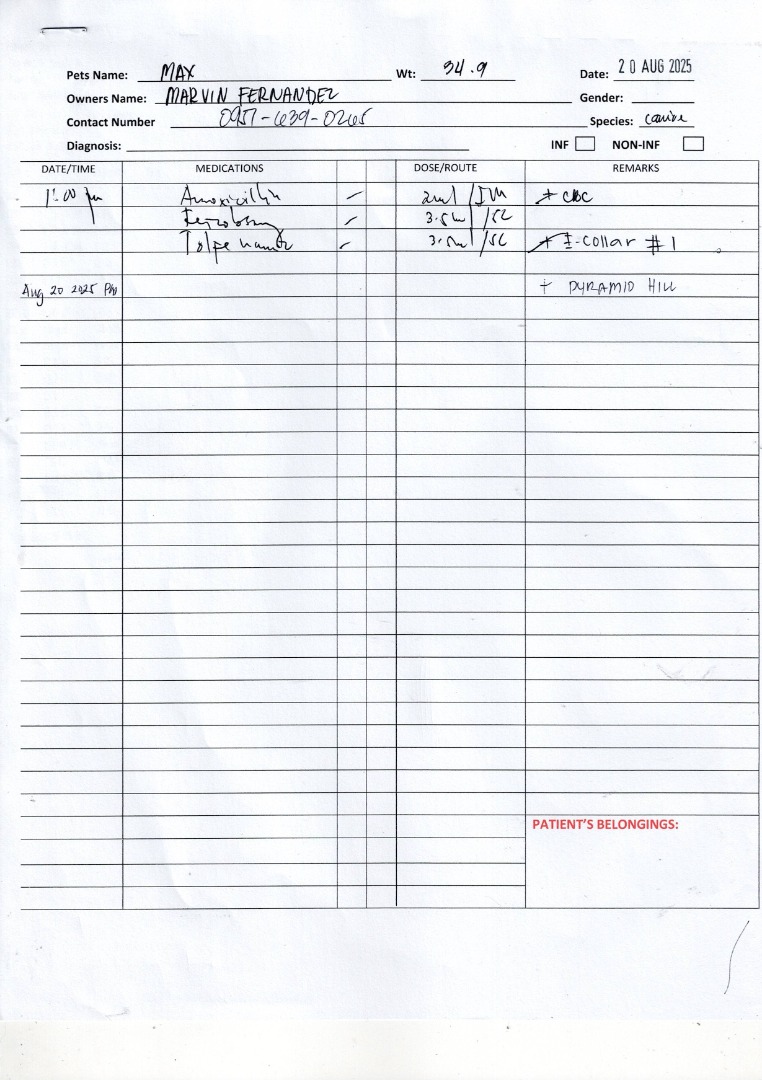 Pets Name: MAX Wt: 34.9 Date: 20 AUG 2025
Owners Name: MARVIN FERNANDEZ Gender:
Contact Number 0957-639-0265 Species: canine
Diagnosis: INF NON-INF
DATE/TIME MEDICATIONS DOSE/ROUTE REMARKS
Amoxicillin 2ml /IM + CBC
3.5ml /SC
Tolfenamic 3.5ml /SC + E-collar #1
Aug 20 2025 PM + PYRAMID HILL
PATIENT'S BELONGINGS: